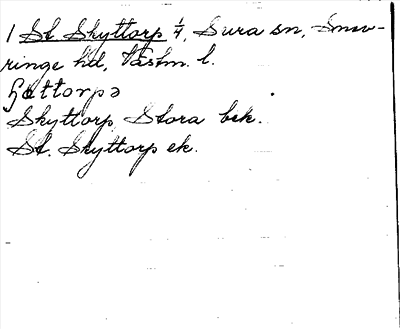 1 St. Skyttorp 1/4, Sura sn, Snev-
ringe hd, Västm. l.
Skyttorp Stora bek.
St. Skyttorp ek.